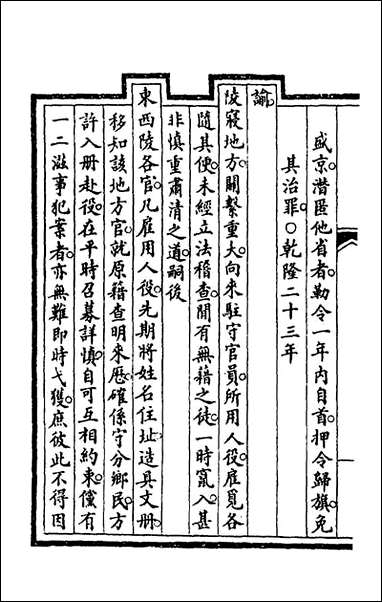 盛京潛匿他省者勒令一年內自首押令歸旗免
其治罪○乾隆二十三年
諭
陵寢地方關繫重大向來駐守官員所用人役雇覓各
隨其便未經立法稽查間有無藉之徒一時竄入甚
非慎重肅清之道嗣後
東西陵各官凡雇用人役先期將姓名住址造具文冊
移知該地方官就原籍查明來歷確係守分鄉民方
許入冊赴役在平時召募詳慎自可互相約束儻有
一二滋事犯案者亦無難即時弋獲庶彼此不得因